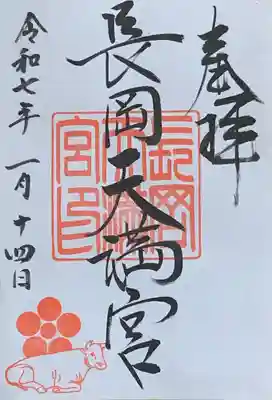 奉拝
長岡天満宮
長岡天満宮印
令和七年 一月 十四日